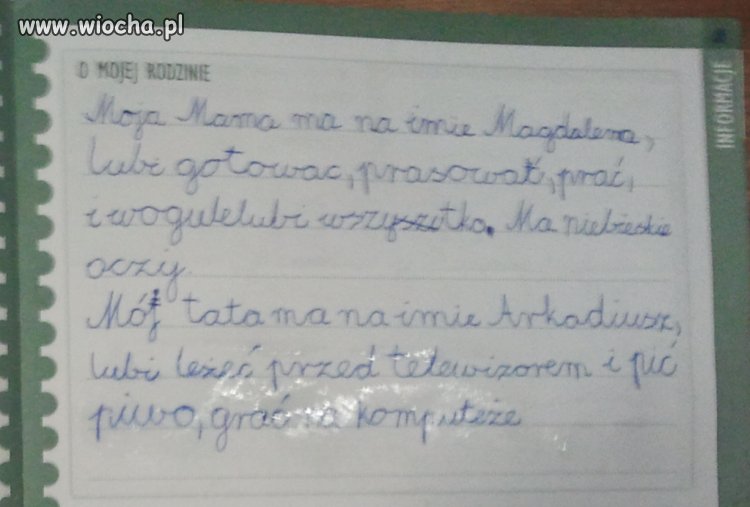 www.wiocha.pl
O MOJEJ RODZINIE
INFORMACJE
Moja Mama ma na imie Magdalena,
lubi gotowac, prasować, prać,
i wogule lubi wszysztko. Ma niebieskie
oczy
Mój tata ma na imie Arkadiusz,
lubi leżeć przed telewizorem i pić
piwo, grać na komputeże